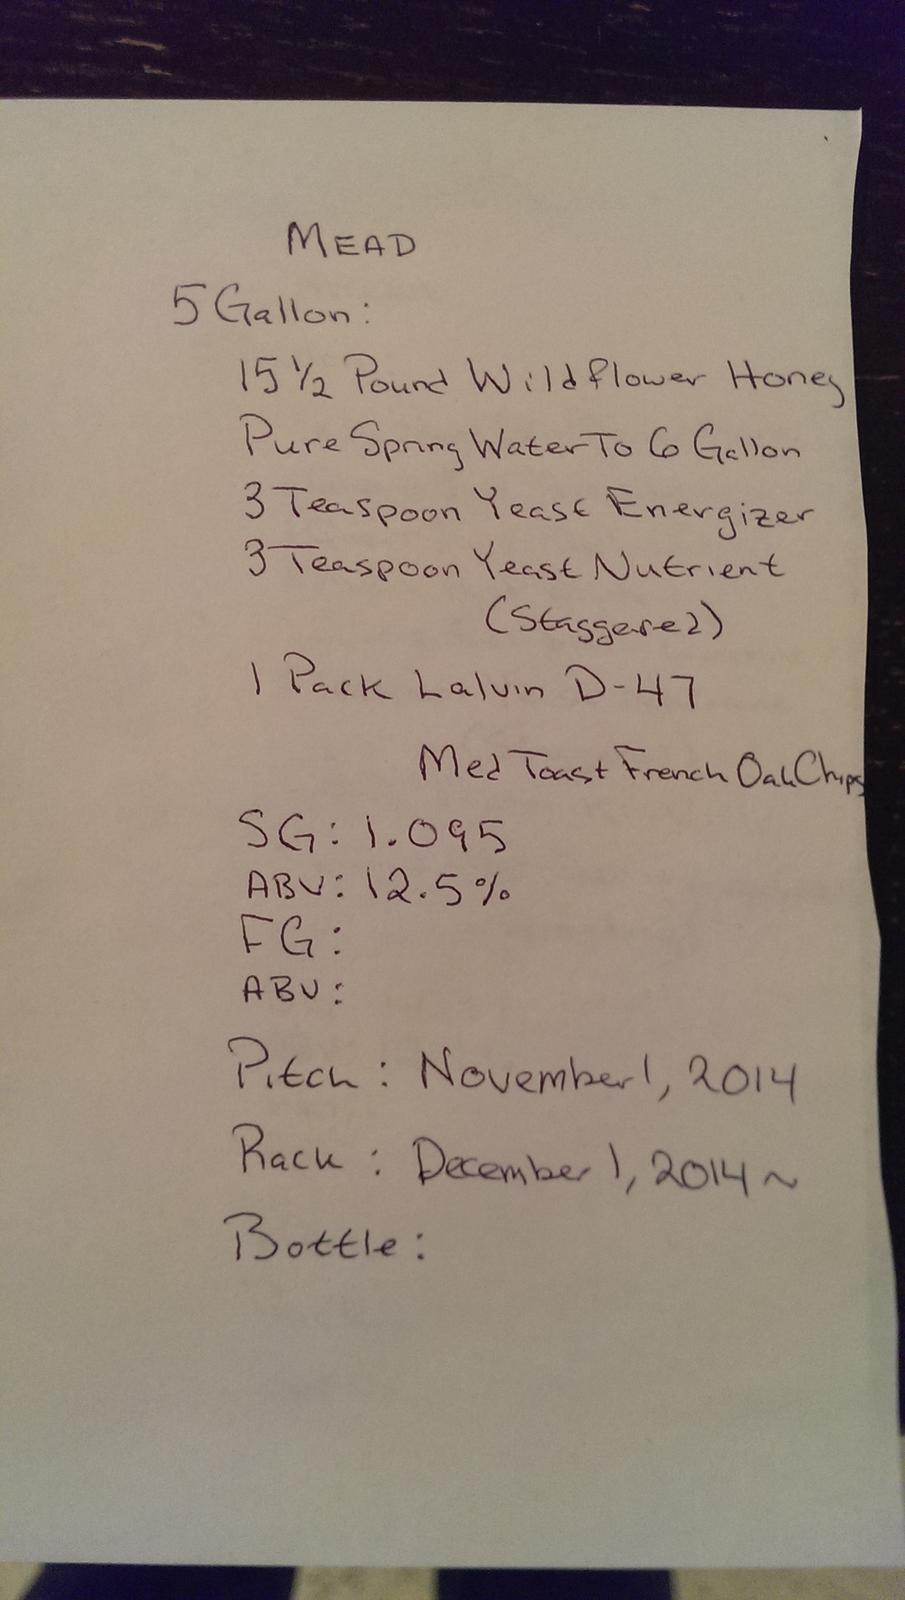 MEAD
5 Gallon:
15 1/2 Pound Wildflower Honey
Pure Spring Water To 6 Gallon
3 Teaspoon Yeast Energizer
3 Teaspoon Yeast Nutrient
(Staggered)
1 Pack Lalvin D-47
Med Toast French Oak Chips
SG: 1.095
ABV: 12.5%
FG:
ABV:
Pitch: November 1, 2014
Rack: December 1, 2014 ~
Bottle: